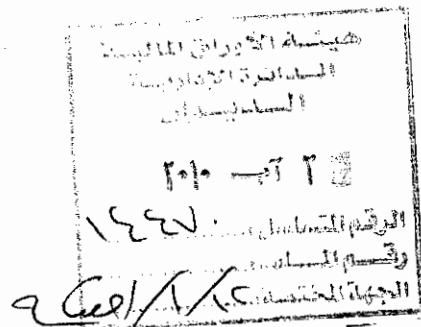 هيئة الأوراق المالية
الدائرة الإدارية
الديوان
٢ آب ٢٠١٠
الرقم المتسلسل ١٤٤٧٠
رقم الملف
الجهة المختصة